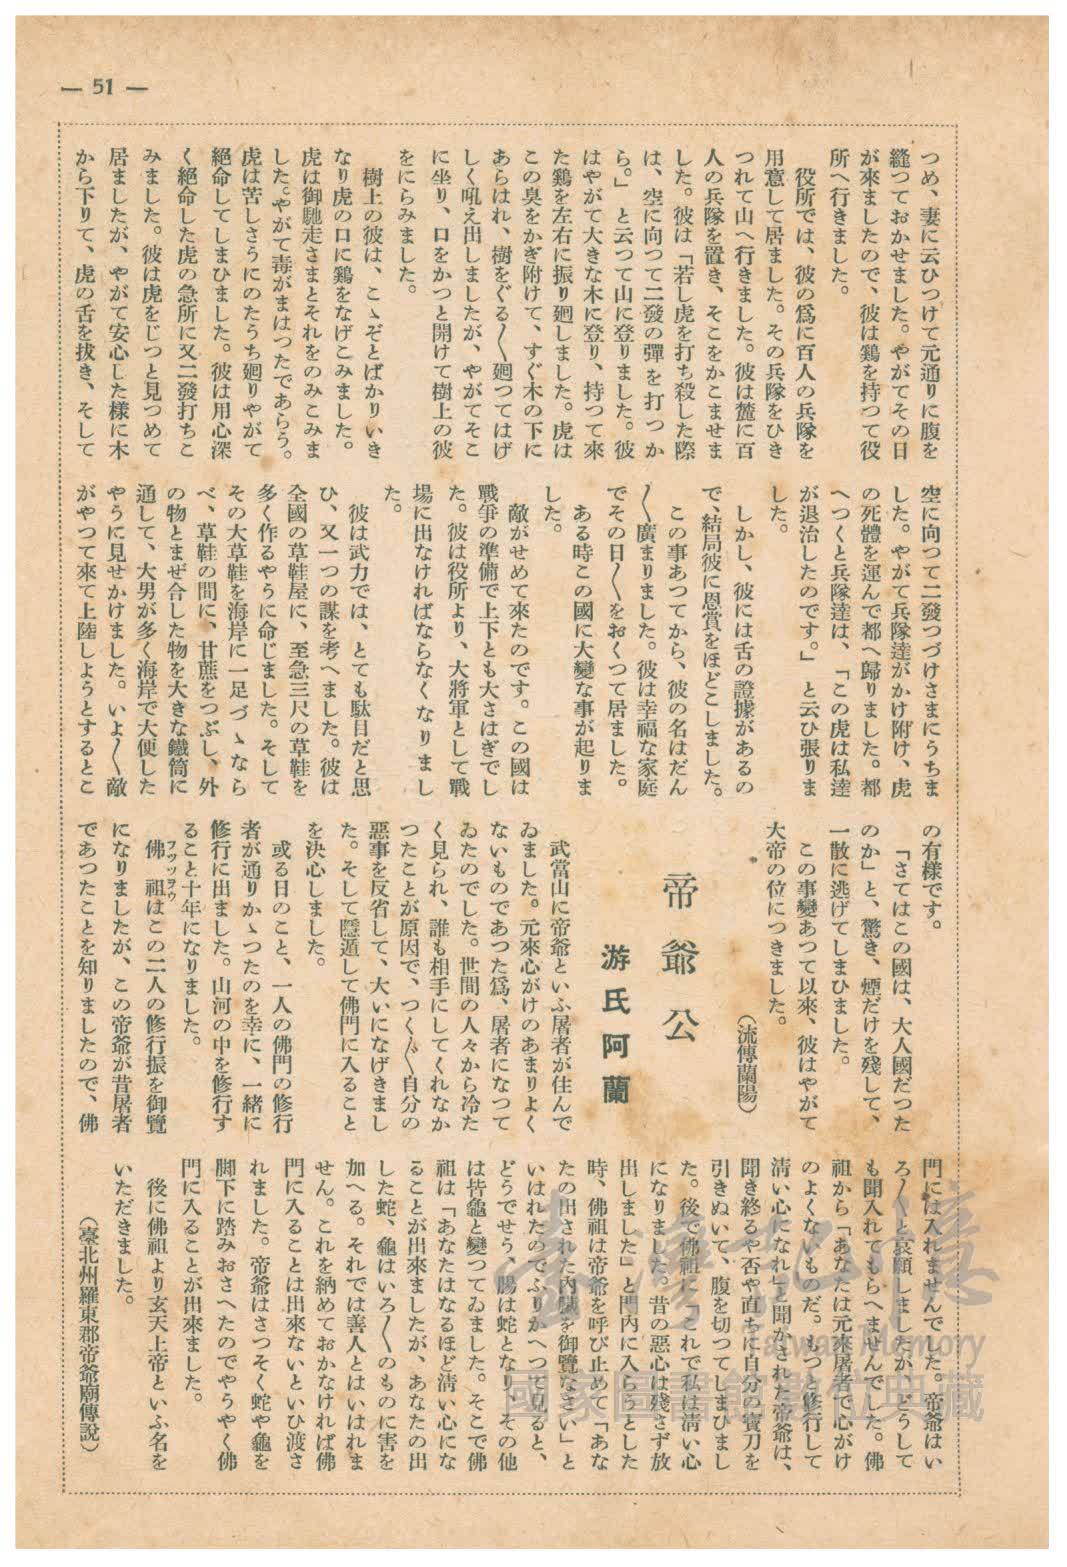 — 51 —
つめ、妻に云ひつけて元通りに腹を
縫つておかせました。やがてその日
が來ましたので、彼は鷄を持つて役
所へ行きました。
役所では、彼の爲に百人の兵隊を
用意して居ました。その兵隊をひき
つれて山へ行きました。彼は麓に百
人の兵隊を置き、そこをかこませま
した。彼は「若し虎を打ち殺した際
は、空に向つて二發の彈を打つか
ら。」と云つて山に登りました。彼
はやがて大きな木に登り、持つて來
た鷄を左右に振り廻しました。虎は
この臭をかぎ附けて、すぐ木の下に
あらはれ、樹をぐる〱廻つてはげ
しく吼え出しましたが、やがてそこ
に坐り、口をかつと開けて樹上の彼
をにらみました。
樹上の彼は、こゝぞとばかりいき
なり虎の口に鷄をなげこみました。
虎は御馳走さまとそれをのみこみま
した。やがて毒がまはつたであらう。
虎は苦しさうにのたうち廻りやがて
絕命してしまひました。彼は用心深
く絕命した虎の急所に又二發打ちこ
みました。彼は虎をじつと見つめて
居ましたが、やがて安心した樣に木
から下りて、虎の舌を拔き、そして
空に向つて二發つづけさまにうちま
した。やがて兵隊達がかけ附け、虎
の死體を運んで都へ歸りました。都
へつくと兵隊達は、「この虎は私達
が退治したのです。」と云ひ張りま
した。
しかし、彼には舌の證據があるの
で、結局彼に恩賞をほどこしました。
この事あつてから、彼の名はだん
〱廣まりました。彼は幸福な家庭
でその日〱をおくつて居ました。
ある時この國に大變な事が起りま
した。
敵がせめて來たのです。この國は
戰爭の準備で上下とも大さはぎでし
た。彼は役所より、大將軍として戰
場に出なければならなくなりまし
た。
彼は武力では、とても駄目だと思
ひ、又一つの謀を考へました。彼は
全國の草鞋屋に、至急三尺の草鞋を
多く作るやうに命じました。そして
その大草鞋を海岸に一足づゝなら
べ、草鞋の間に、甘蔗をつぶし、外
の物とまぜ合した物を大きな鐵筒に
通して、大男が多く海岸で大便した
やうに見せかけました。いよ〱敵
がやつて來て上陸しようとするとこ
の有樣です。
「さてはこの國は、大人國だつた
のか」と、驚き、煙だけを殘して、
一散に逃げてしまひました。
この事變あつて以來、彼はやがて
大帝の位につきました。
(流傳蘭陽)
帝爺公
游氏阿蘭
武當山に帝爺といふ屠者が住んで
ゐました。元來心がけのあまりよく
ないものであつた爲、屠者になつて
ゐたのでした。世間の人々から冷た
く見られ、誰も相手にしてくれなか
つたことが原因で、つく〲自分の
惡事を反省して、大いになげきまし
た。そして隱遁して佛門に入ること
を決心しました。
或る日のこと、一人の佛門の修行
者が通りかゝつたのを幸に、一緒に
修行に出ました。山河の中を修行す
ること十年になりました。
佛祖はこの二人の修行振を御覽
フウツヲウ
になりましたが、この帝爺が昔屠者
であつたことを知りましたので、佛
門には入れませんでした。帝爺はい
ろ〱と哀願しましたが、どうして
も聞入れてもらへませんでした。佛
祖から「あなたは元來屠者で心がけ
のよくないものだ。もつと修行して
淸い心になれ」と聞かされた帝爺は、
聞き終るや否や直ちに自分の寶刀を
引きぬいて、腹を切つてしまひまし
た。後で佛祖に「これで私は淸い心
になりました。昔の惡心は殘さず放
出しました」と門內に入らうとした
時、佛祖は帝爺を呼び止めて「あな
たの出された內臟を御覽なさい」と
いはれたのでふりかへつて見ると、
どうでせう、腸は蛇となり、その他
は皆龜と變つてゐました。そこで佛
祖は「あなたはなるほど淸い心にな
ることが出來ましたが、あなたの出
した蛇、龜はいろ〱のものに害を
加へる。それでは善人とはいはれま
せん。これを納めておかなければ佛
門に入ることは出來ないといひ渡さ
れました。帝爺はさつそく蛇や龜を
脚下に踏みおさへたのでやうやく佛
門に入ることが出來ました。
後に佛祖より玄天上帝といふ名を
いただきました。
(臺北州羅東郡帝爺廟傳說)
臺灣記憶
Taiwan Memory
國家圖書館數位典藏